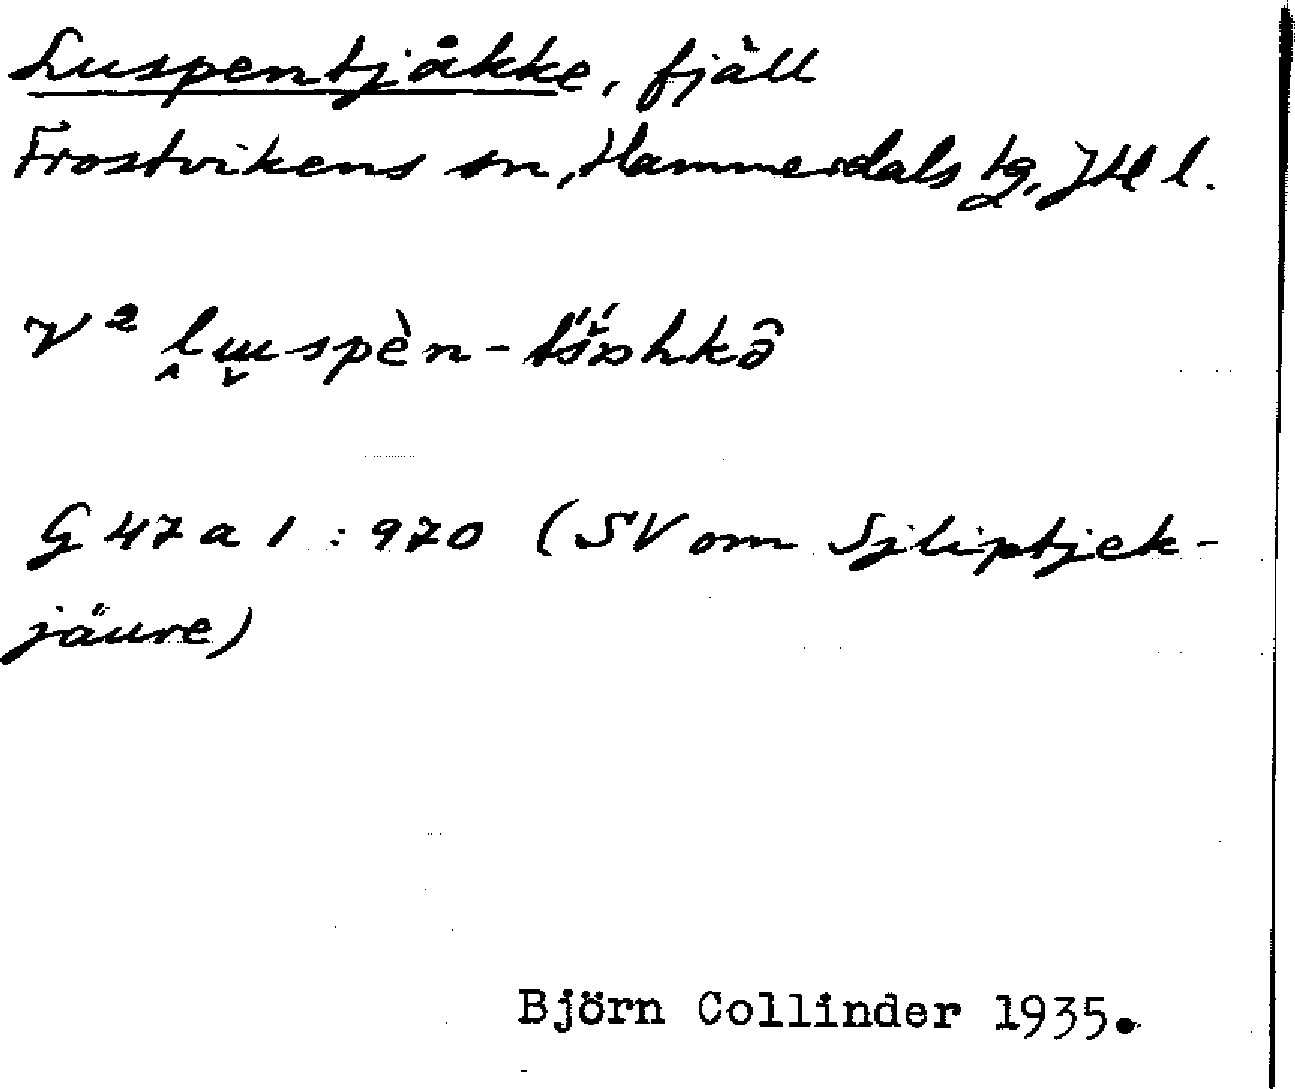 Luspentjåkke, fjäll
Frostvikens sn, Hammerdals tg, Jtl l.
V²
G 47 a 1 : 970 (SV om Sjliptjek-
jäure)
Björn Collinder 1935.